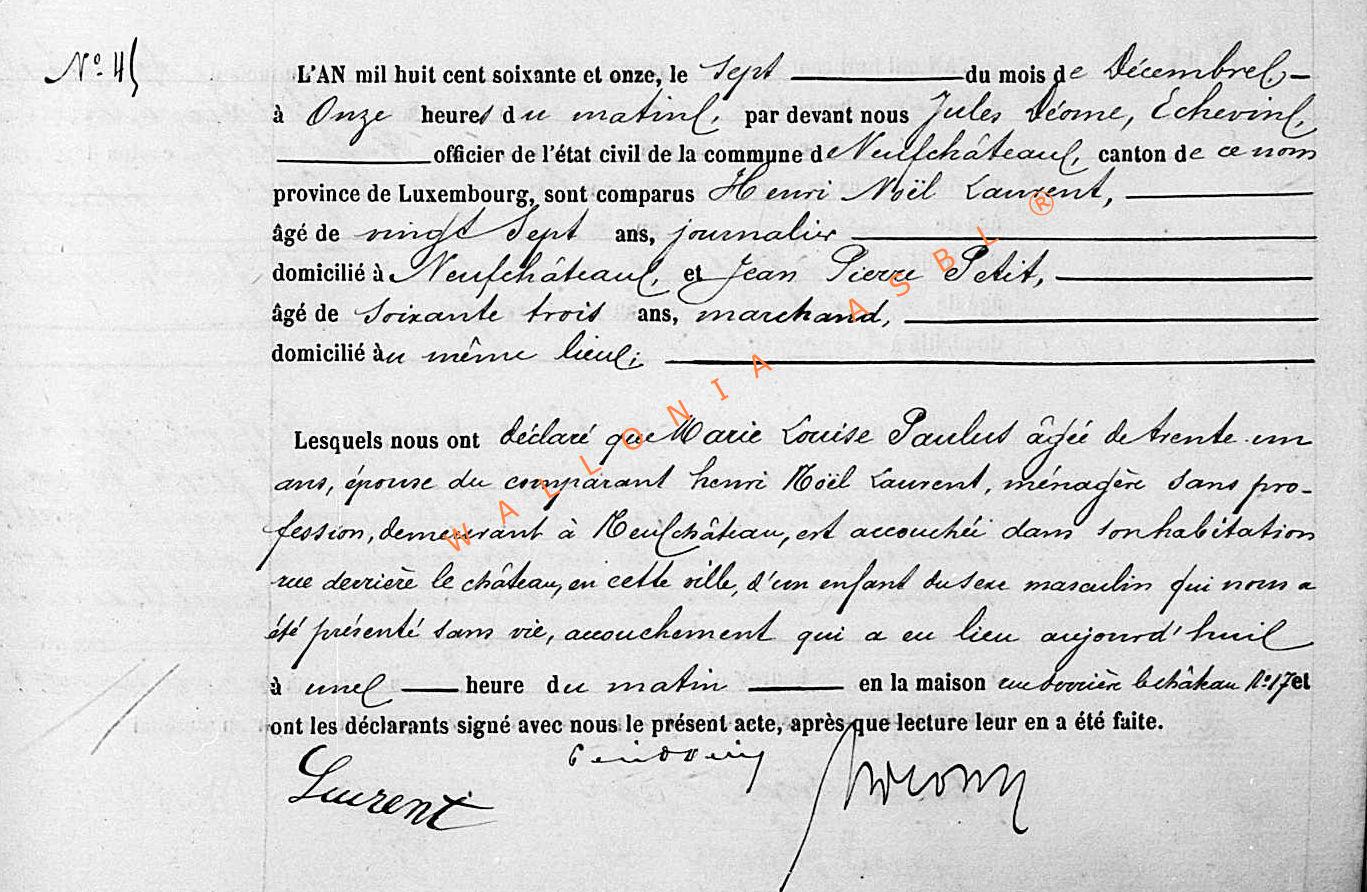 N° 45
L'AN mil huit cent soixante et onze, le sept du mois de Décembre,
à Onze heures du matin, par devant nous Jules Déome, Echevin,
officier de l'état civil de la commune de Neufchâteau, canton de ce nom
province de Luxembourg, sont comparus Henri Noël Laurent,
âgé de vingt sept ans, journalier
domicilié à Neufchâteau, et Jean Pierre Petit,
âgé de soixante trois ans, marchand,
domicilié au même lieu;
Lesquels nous ont déclaré que Marie Louise Paulus âgée de trente un
ans, épouse du comparant henri Noël Laurent, ménagère sans pro-
fession, demeurant à Neufchâteau, est accouchée dans son habitation
rue derrière le château, en cette ville, d'un enfant du sexe masculin qui nous a
été présenté sans vie, accouchement qui a eu lieu aujourd'hui
à une heure du matin en la maison rue derrière le château N° 17 et
ont les déclarants signé avec nous le présent acte, après que lecture leur en a été faite.
Laurent
WALLONIA ASBL ®